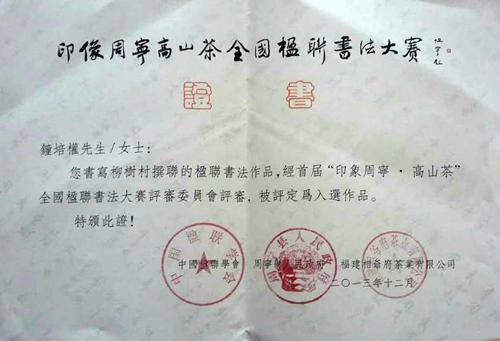 印像周寧高山茶全國楹聯書法大賽
證書
鐘培權先生/女士：
您書寫柳樹村撰聯的楹聯書法作品，經首届“印象周寧·高山茶”
全國楹聯書法大賽評審委員會評審，被評定爲入選作品。
特頒此證！
中國楹聯學會 周寧縣人民政府 福建相爺府茶業有限公司
二〇一三年十二月
中国楹联学会
周宁县人民政府